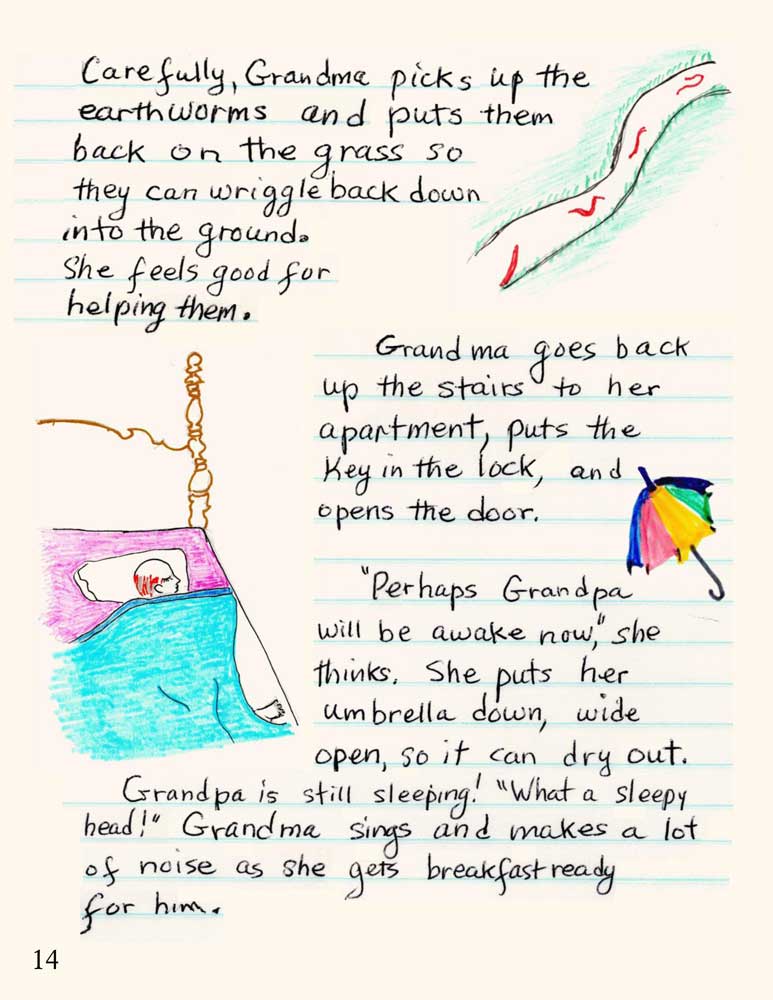 Carefully, Grandma picks up the
earthworms and puts them
back on the grass so
they can wriggle back down
into the ground.
She feels good for
helping them.
Grandma goes back
up the stairs to her
apartment, puts the
Key in the lock, and
opens the door.
"Perhaps Grandpa
will be awake now," she
thinks. She puts her
umbrella down, wide
open, so it can dry out.
Grandpa is still sleeping! "What a sleepy
head!" Grandma sings and makes a lot
of noise as she gets breakfast ready
for him.
14